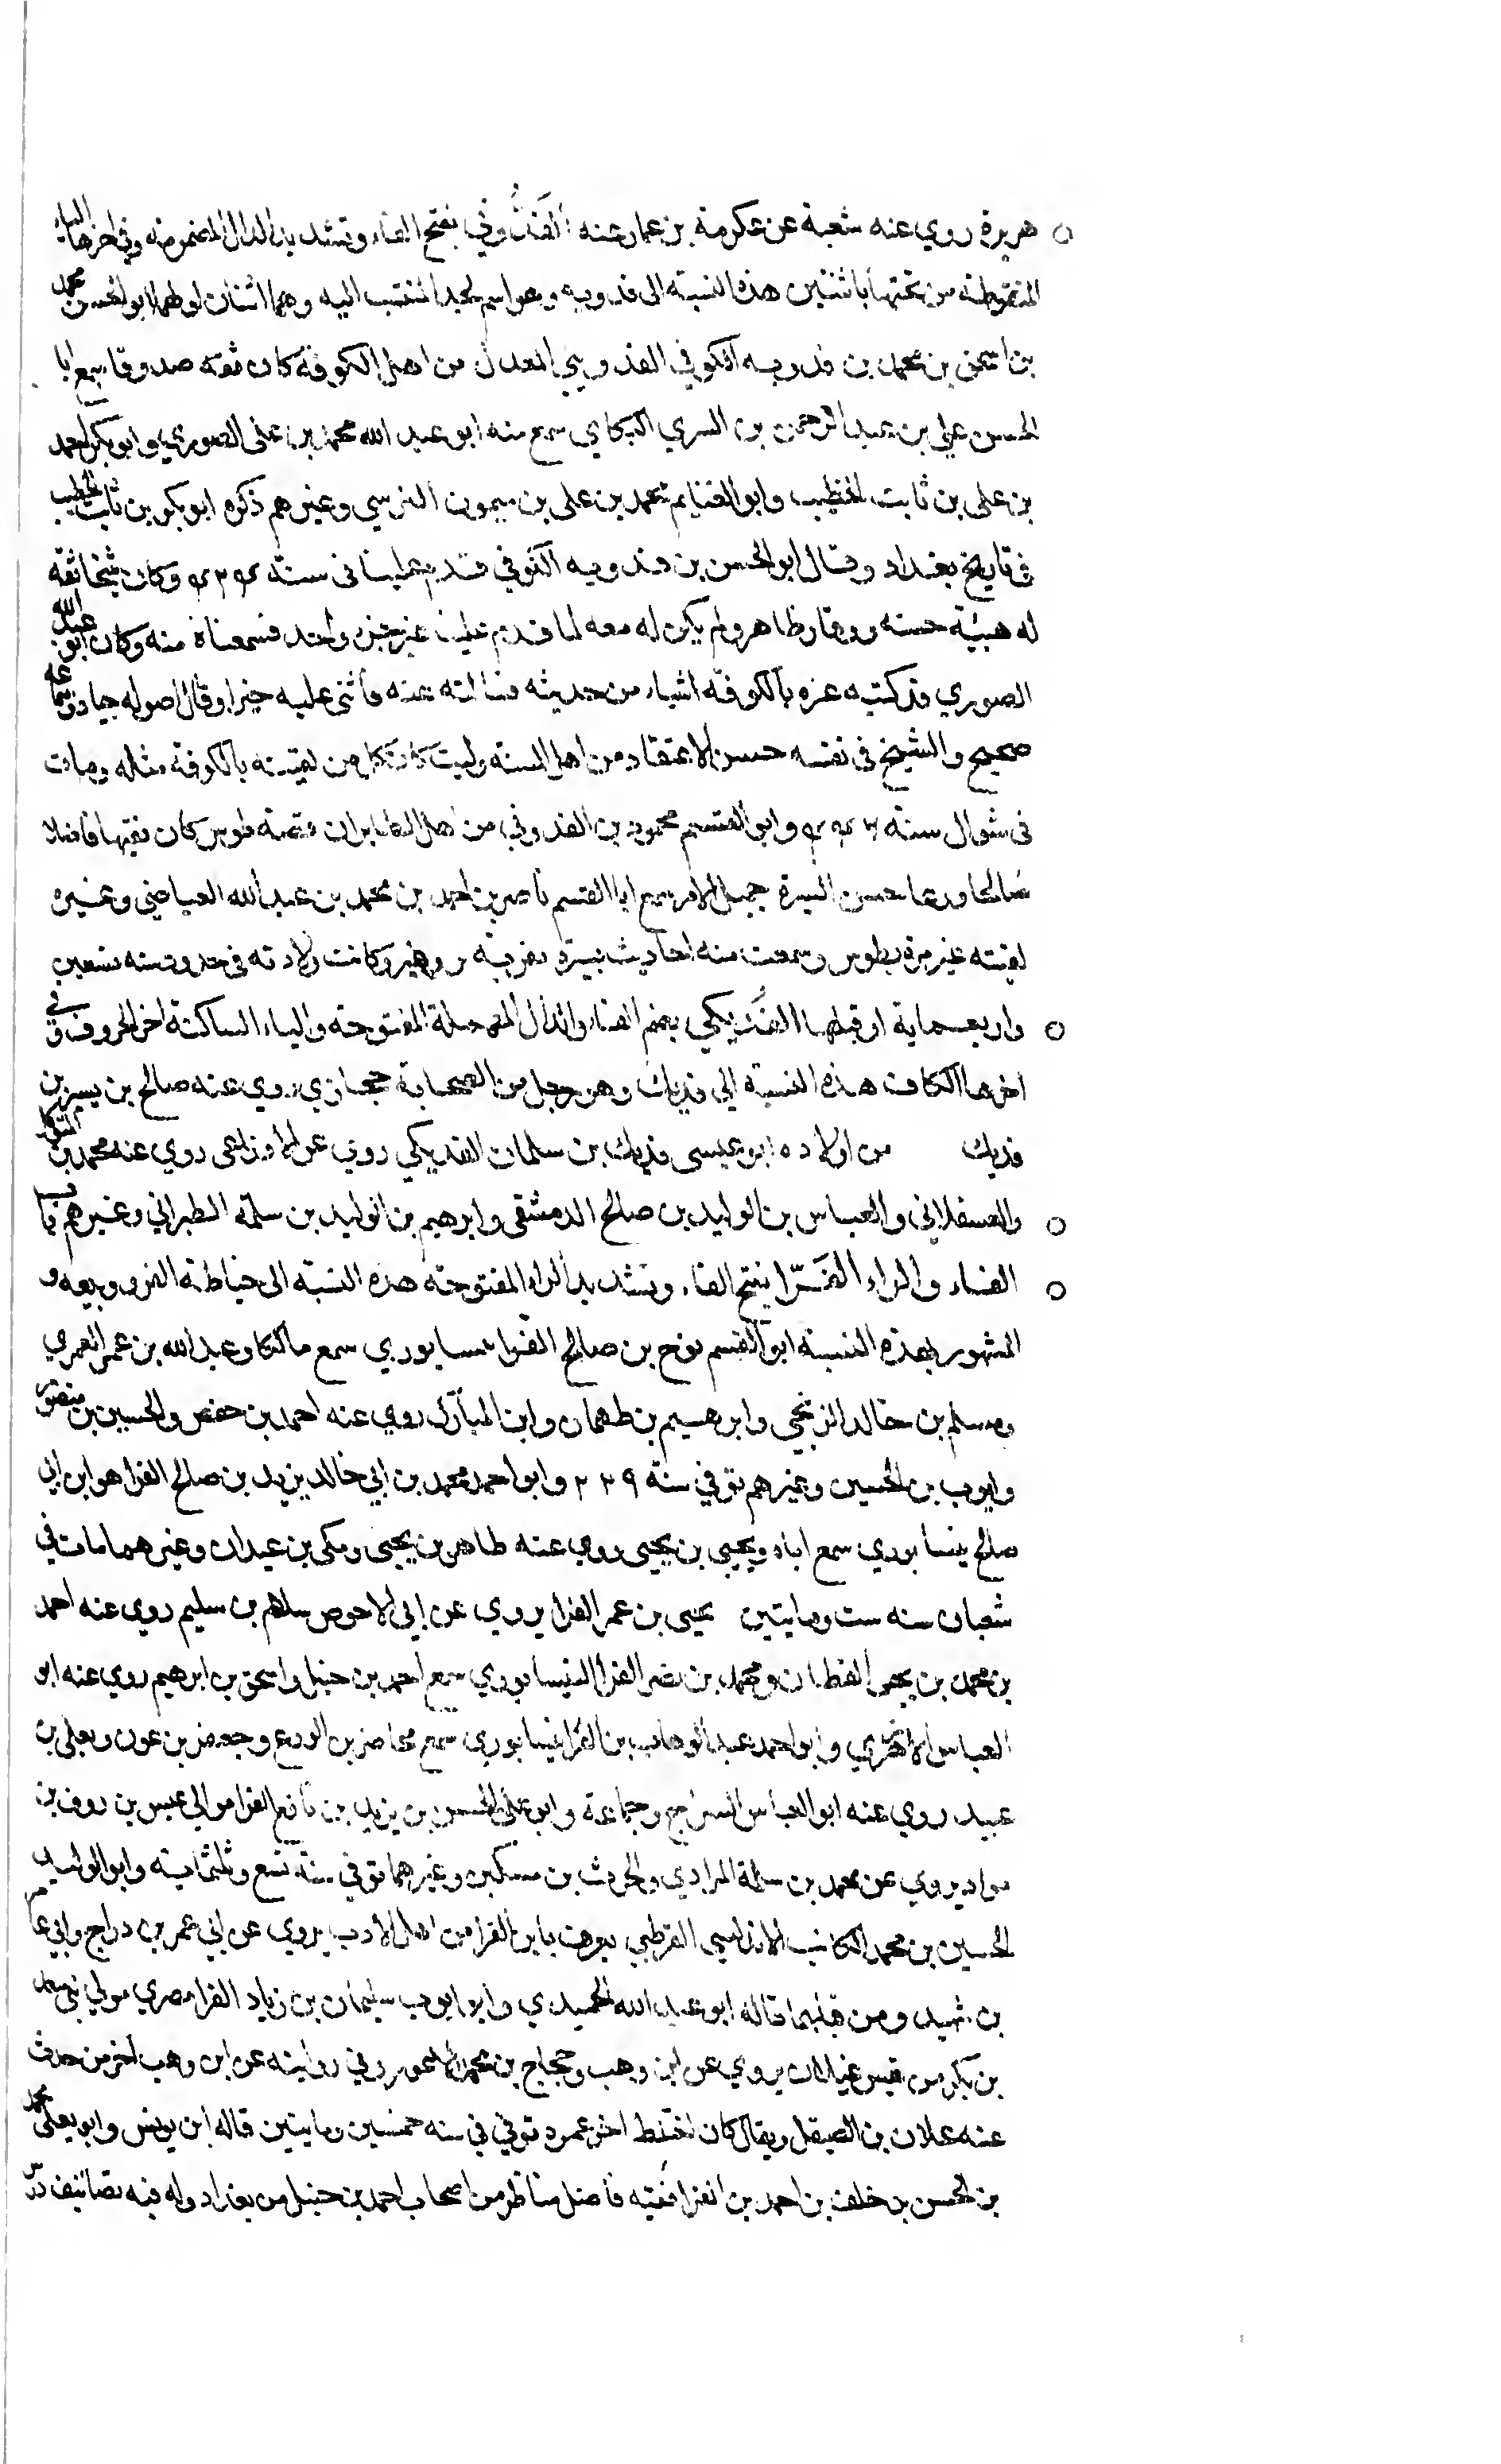 هريرة روي عنه شعبة عن عكرمة بن عمار عنه الفدوي بفتح الفاء وتشديد الدال المضمومة وفي اخرها الياء
المنقوطة من تحتها باثنتين هذه النسبة الى فدويه وهو اسم لجد المنتسب اليه وهما اثنان اولهما ابو الحسن محمد
بن اسحق بن محمد بن فدويه الكوفي الفدويي المعدل من اهل الكوفة كان ثقة صدوقا سمع ابا
الحسن علي بن عبد الرحمن بن السري البكاي سمع منه ابو عبد الله محمد بن على الصوري وابو بكر احمد
بن على بن ثابت الخطيب وابو الغنايم محمد بن على بن ميمون النرسي وغيرهم ذكره ابو بكر بن ثابت الخطيب
في تاريخ بغداد وقال ابو الحسن بن فدويه الكوفي قدم علينا فى سنة وكان شيخا ثقة
له هيئة حسنة ووقار ظاهر ولم يكن له معه لما قدم علينا غير جزء واحد فسمعناه منه وكان ابو عبد الله
الصوري قد كتب عنه بالكوفة اشياء من حديثه فسالته عنه فاثنى عليه خيرا وقال اصوله جياد وسماعه
صحيح والشيخ فى نفسه حسن الاعتقاد من اهل السنة وليت كان كل من لقيته بالكوفة مثله ومات
فى شوال سنة وابو القسم محمود بن الفدوي من اهل الطابران قصبة طوس كان فقيها فاضلا
صالحا ورعا حسن السيرة جميل الامر سمع ابا القسم ناصر بن احمد بن محمد بن عبد الله العياضي وغيره
لقيته غير مرة بطوس وسمعت منه احاديث يسيرة بقرية وكانت ولادته فى حدود سنة تسعين
واربعماية او قبلها الفديكي بضم الفاء والدال المهملة المفتوحة والياء الساكنة اخر الحروف وفي
اخرها الكاف هذه النسبة الي فديك وهو رجل من الصحابة حجازي روي عنه صالح بن بشير بن
فديك من اولاده ابو عيسى فديك بن سلمان الفديكي روي عن الاوزاعى روي عنه محمد بن المتوكل
والعسقلاني والعباس بن الوليد بن صالح الدمشقى وابرهيم بن الوليد بن سلمة الطبراني وغيرهم باب
الفاء والراء الفرا بفتح الفاء وتشديد الراء المفتوحة هذه النسبة الى خياطة الفرو وبيعه و
المشهور بهذه النسبة ابو القسم نوح بن صالح الفرا نيسابوري سمع مالكا وعبد الله بن عمر العمري
ومسلم بن خالد الزنجي وابرهيم بن طهمان وابن المبارك روي عنه احمد بن حفص والحسين بن منصور
وايوب بن الحسين وغيرهم توفي سنة ٢٣٩ وابو احمد محمد بن ابي خالد يزيد بن صالح الفرا هو ابن ابي
صالح نيسابوري سمع اباه ويحيى بن يحيى روي عنه طاهر بن يحيى ومكى بن عبدان وغيرهما مات في
شعبان سنه ست ومايتين يحيى بن عمر الفرا يروي عن ابي الاحوص سلام بن سليم روي عنه احمد
بن محمد بن يحيى القطان ومحمد بن نصر الفرا النيسابوري سمع احمد بن حنبل واسحق بن ابرهيم روي عنه ابو
العباس الازهري وابو احمد عبد الوهاب بن الفرا نيسابوري سمع محاضر بن الورع وجعفر بن عون ويعلى بن
عبيد روي عنه ابو العباس السراج وجماعة وابو على الحسن بن يزيد بن نافع الفرا موالي عبس بن روف بن
مواد يروي عن محمد بن سلمة المرادي والحرث بن مسكين وغيرهما توفي سنة تسع وثلثماية وابو الوليد
الحسين بن محمد الكاتب الاندلسي القرطبي يعرف بابن الفرا من اهل الادب يروي عن ابي عمر بن دراج وابي عامر
بن شهيد ومن قبلهما قاله ابو عبد الله الحميدي وابو ايوب سليمان بن زياد الفرا مصري مولي بني سعد
بن بكر من قيس عيلان يروي عن ابن وهب وحجاج بن محمد الاعور وفي روايته عن ابن وهب اخر من حدث
عنه علان بن الصيقل ويقال كان اختلط اخر عمره توفي في سنه خمسين ومايتين قاله ابن يونس وابو يعلى محمد
بن الحسن بن خلف بن احمد بن الفرا فقيه فاضل مناظر من اصحاب احمد بن حنبل من بغداد وله فيه تصانيف درس